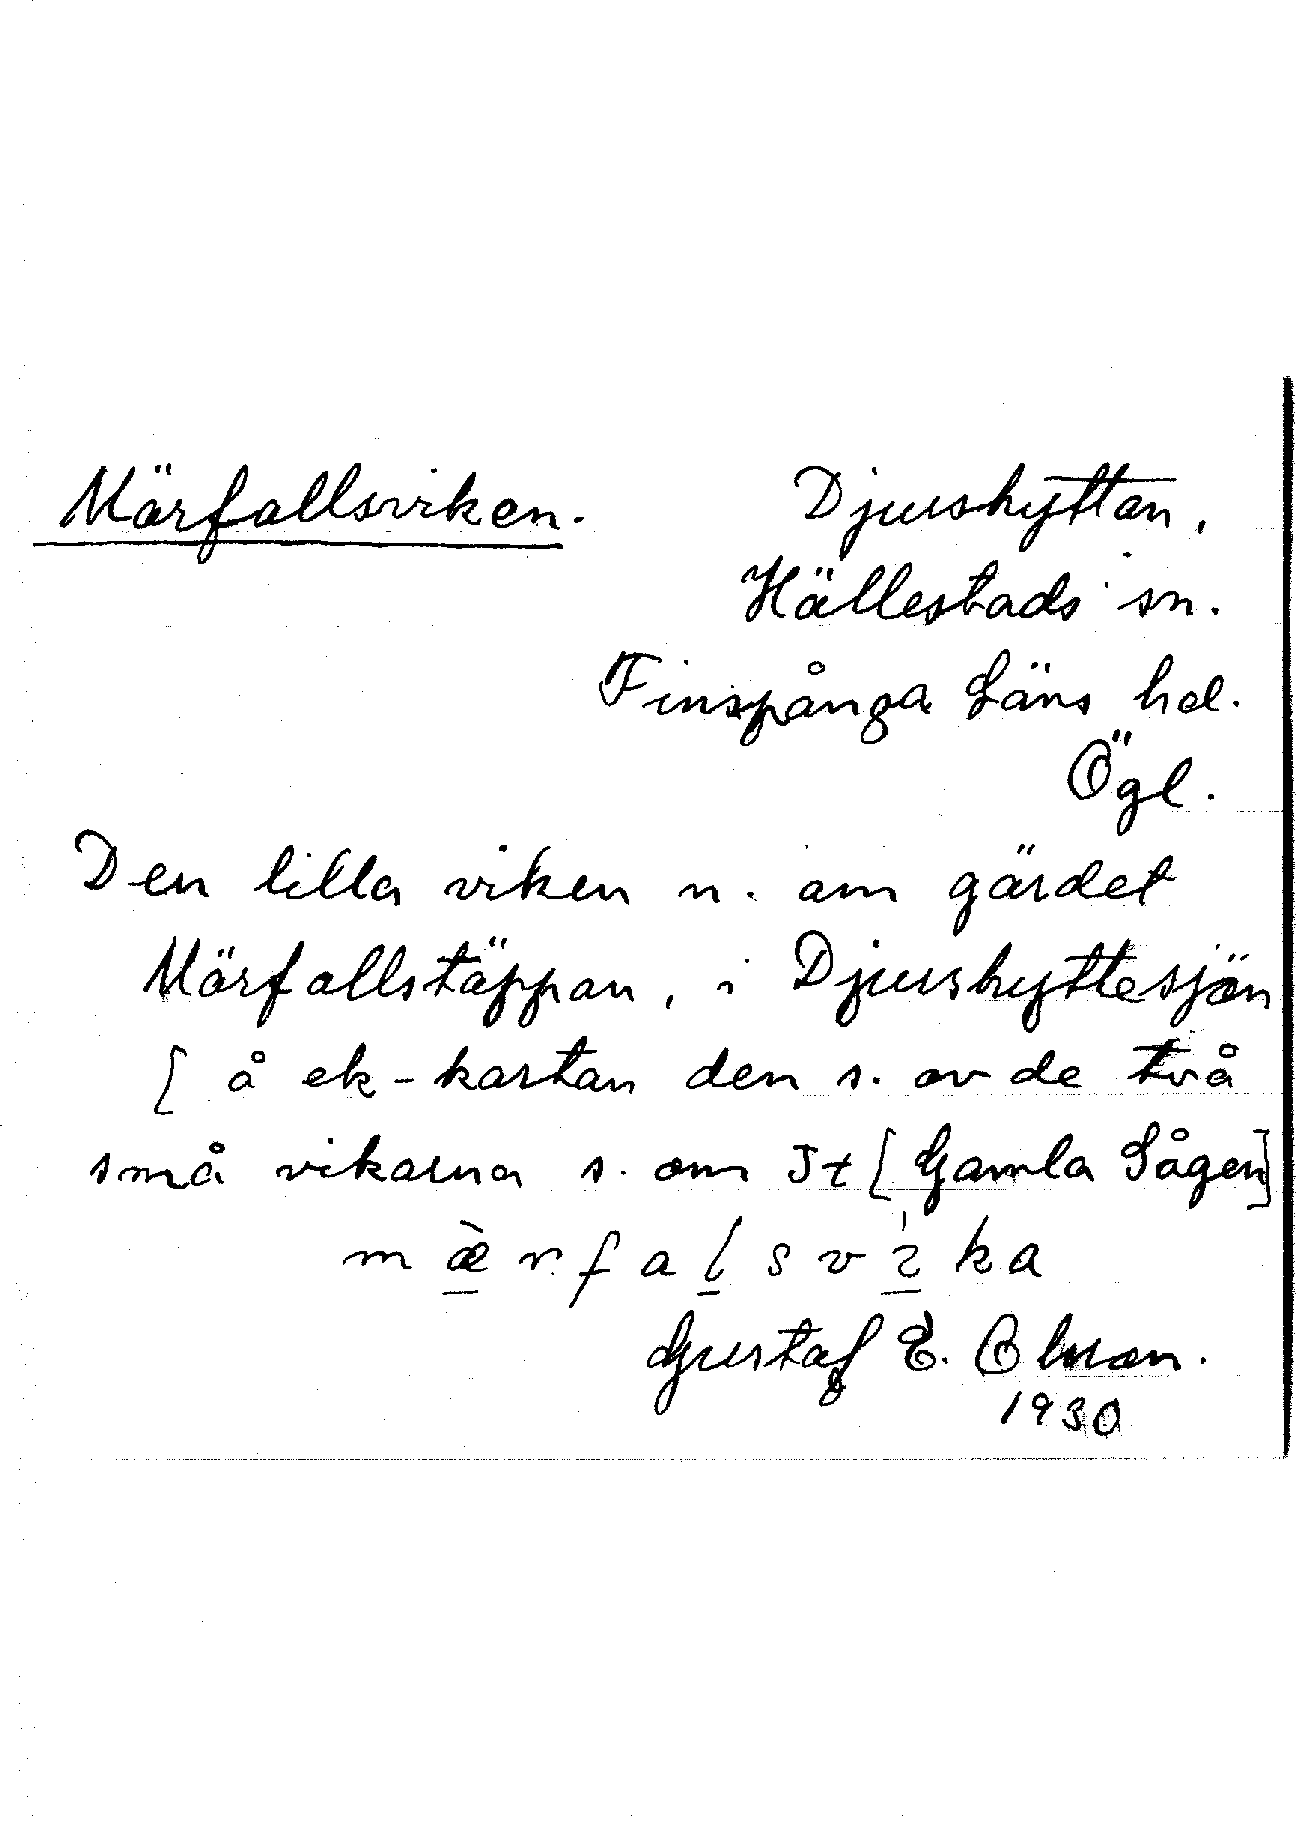 Märfallsviken. Djurshyttan,
Hällestads sn.
Finspånga Läns hd.
Ögl.
Den lilla viken n. om gärdet
Märfallstäppan, i Djurshyttesjön
[ å ek-kartan den s. av de två
små vikarna s. om Jt [ Gamla Sågen]
mæ̀rfalsvika
Gustaf E.
1930